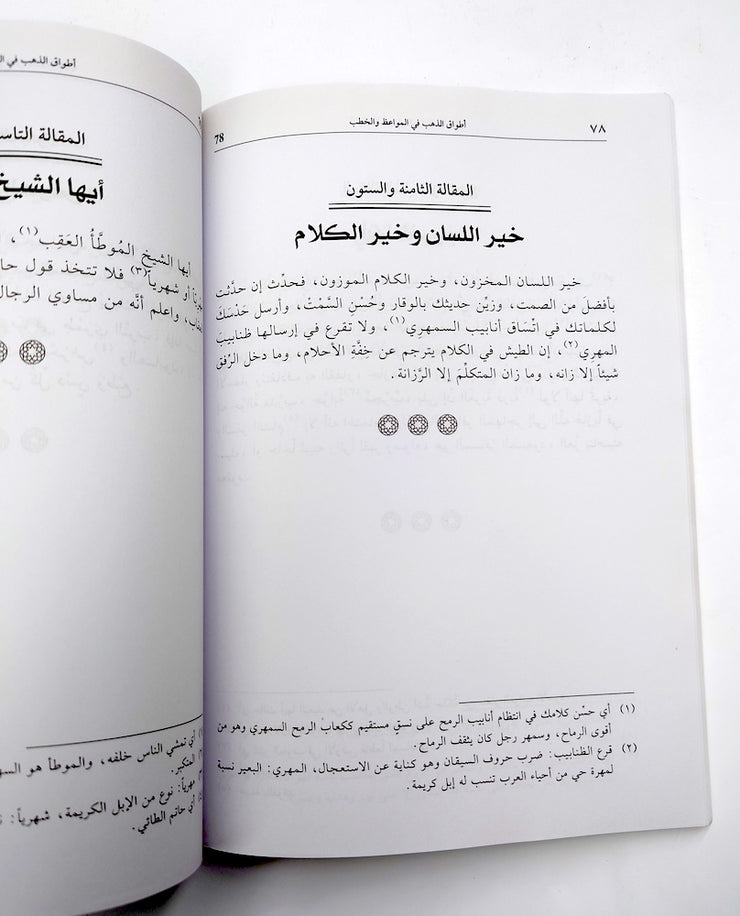 ٧٨
أطواق الذهب في المواعظ والخطب
78
المقالة الثامنة والستون
خير اللسان وخير الكلام
خير اللسان المخزون، وخير الكلام الموزون، فحدِّث إن حدَّثت
بأفضلَ من الصمت، وزيِّن حديثك بالوقار وحُسْنِ السَّمْتْ، وأرسل حَدْسَكَ
لكلماتك في اتْسَاق أنابيب السمهري(١)، ولا تقرع في إرسالها ظنابيبَ
المهرِي(٢)، إن الطيش في الكلام يترجم عن خِفَّةِ الأحلام، وما دخل الرِّفق
شيئاً إلا زانه، وما زان المتكلِّمَ إلا الرَّزانة.
(١) أي حسْن كلامك في انتظام أنابيب الرمح على نسقٍ مستقيم ككعابْ الرمح السمهري وهو من
أقوى الرماح، وسمهر رجل كان يثقف الرماح.
(٢) قرع الظنابيب: ضرب حروف السيقان وهو كناية عن الاستعجال، المهري: البعير نسبة
لمهرة حي من أحياء العرب تنسب له إبل كريمة.
أطواق الذهب في
المقالة
أيها الشيخ
أيها الشيخ المُوطَّأُ العَقِب(١)،
أو شهرياً(٣) فلا تتخذ قول
واعلم أنَّه من مساوي الرجال
أي تمشي الناس خلفه، والموطأ هو
المتكبر.
مهرياً: نوع من الإبل الكريمة، شهرياً:
أي حاتم الطائي.